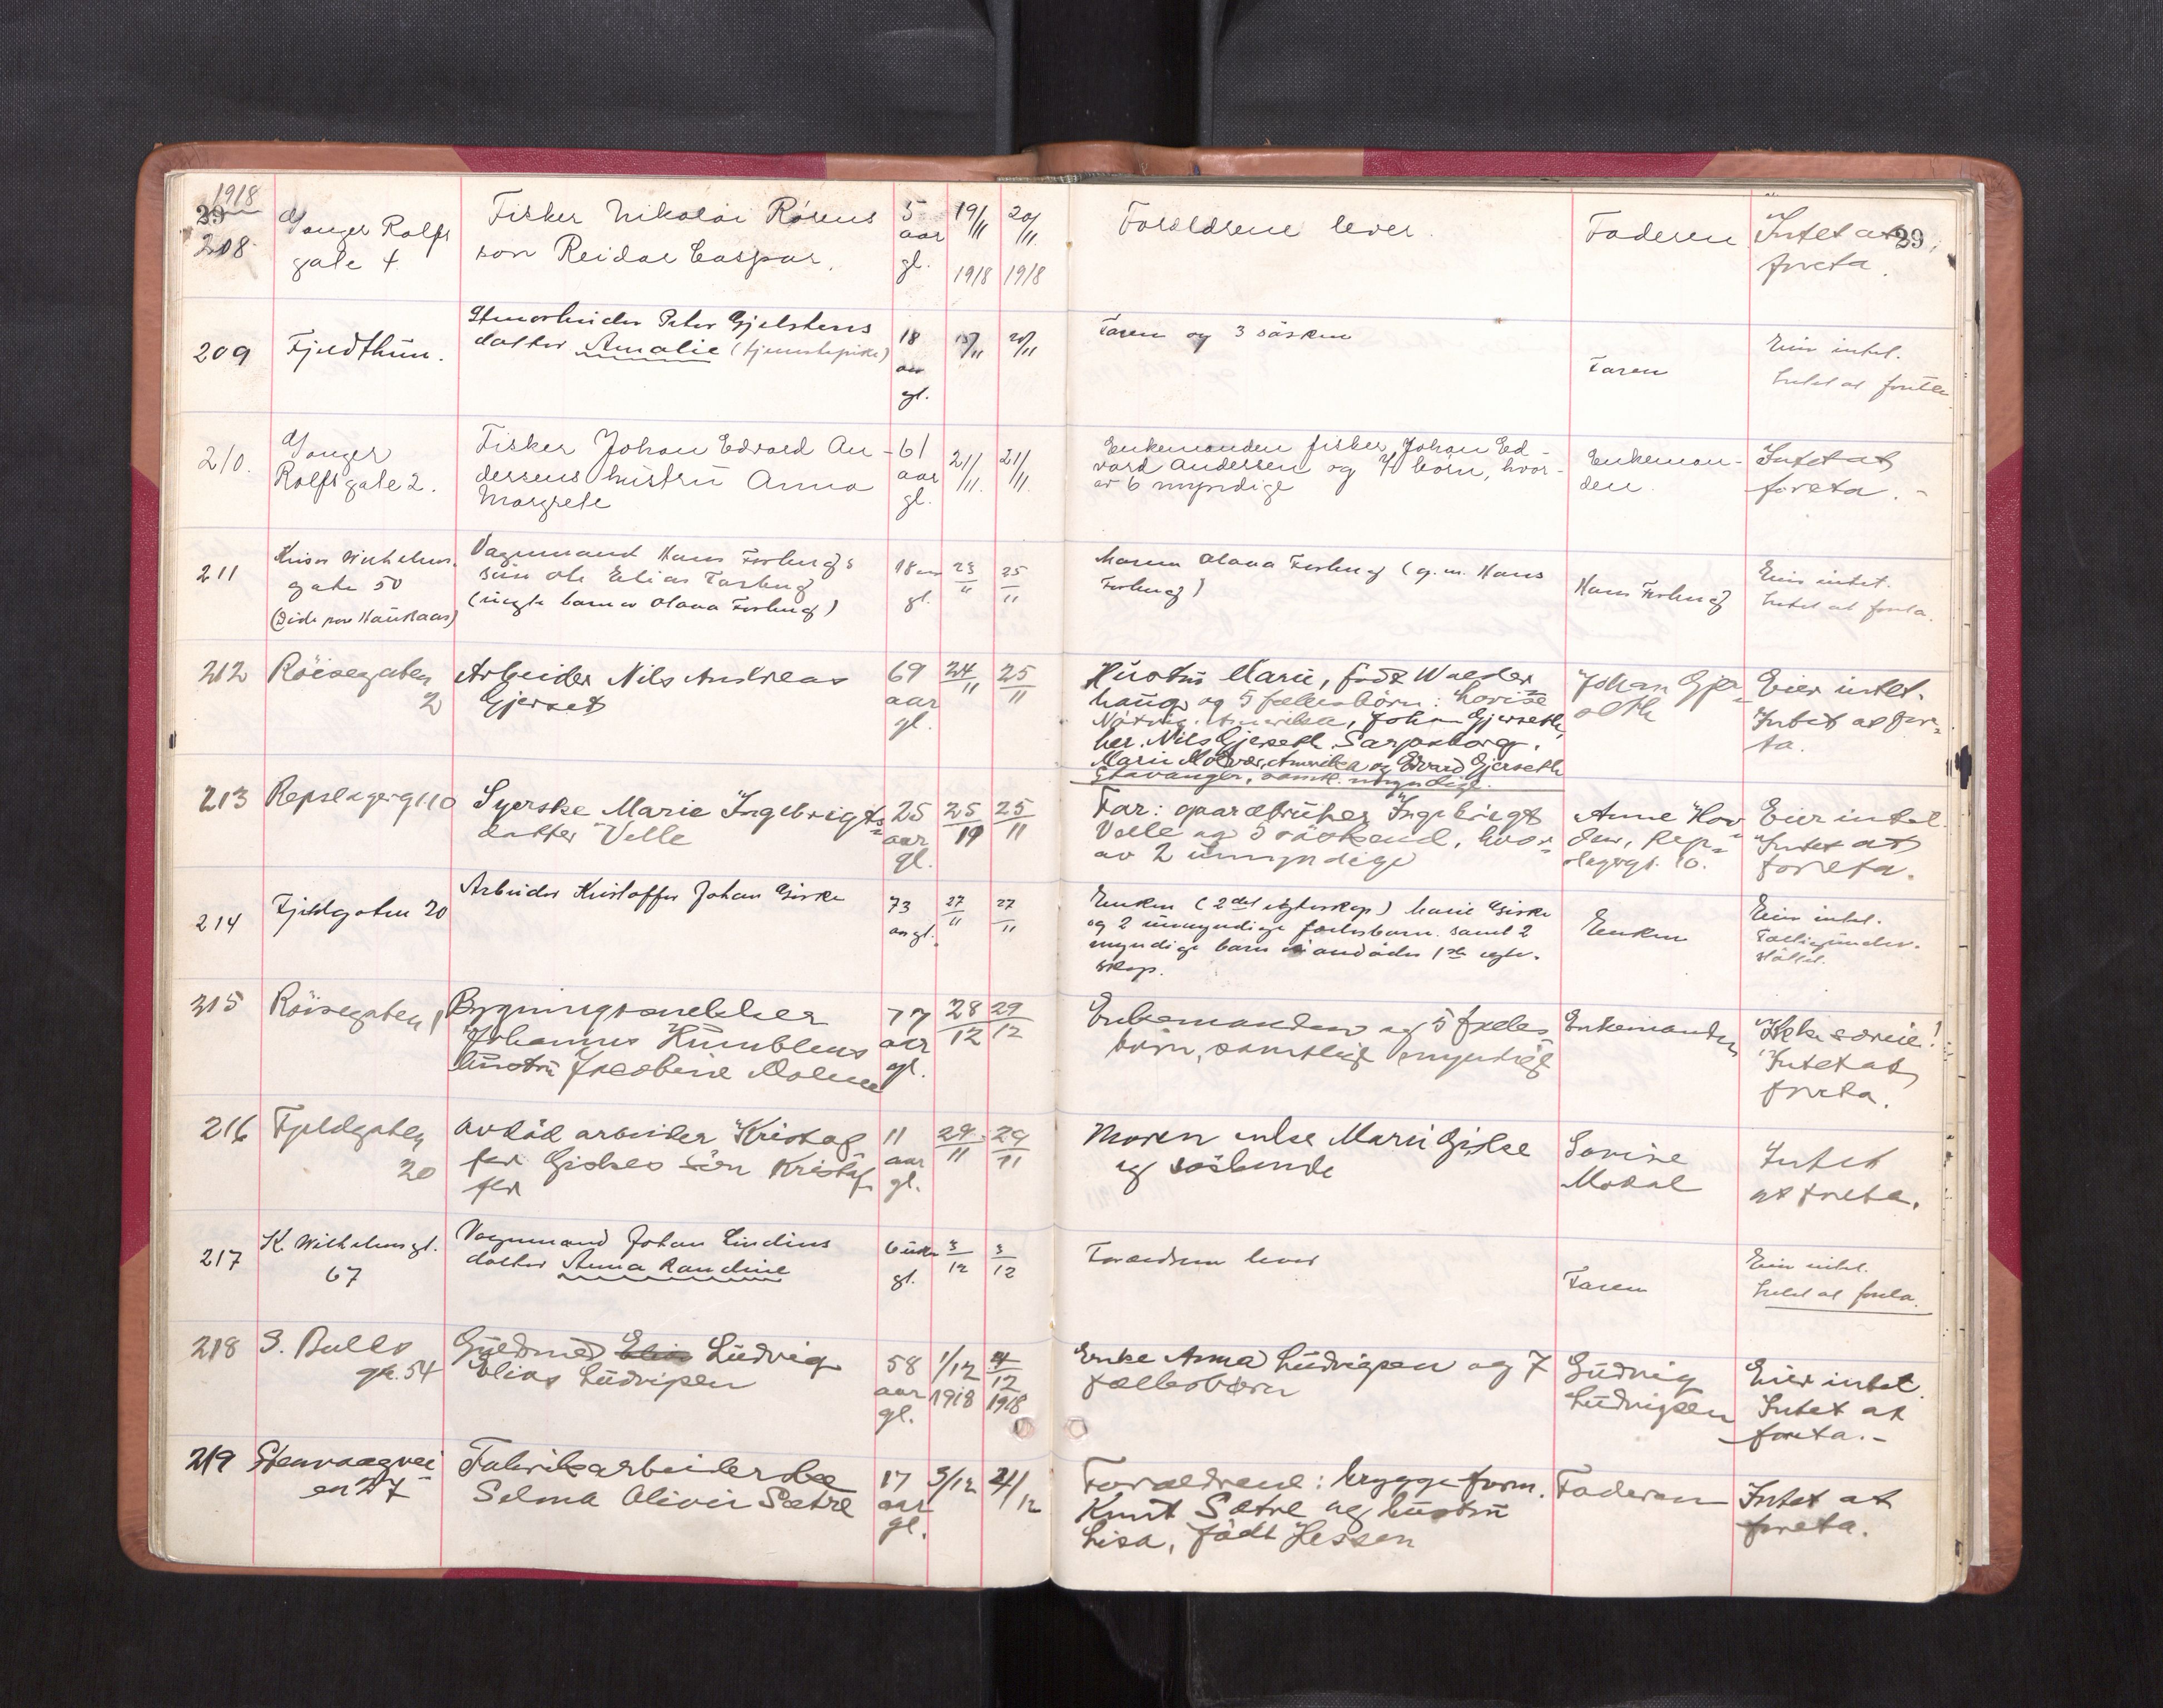 1918
29
208
Ganger Rolfs
gate 4
Fisker Nikolai Røsens
søn Reidar Caspar.
5
aar
gl.
19/11
1918
20/11
1918
Forældrene lever.
Faderen
Intet at
foreta.
29
209
Fjeldthun.
Peter Gjelstens
datter Amalie (tjenestepike)
18
aar
gl.
15/11
20/11
Faren og 3 søsken
Faren
Eier intet.
Intet at foreta
210.
Ganger
Rolfs gate 2.
Fisker Johan Edvard An-
dersens hustru Anna
Margrete
61
aar
gl.
21/11.
21/11.
Enkemanden fisker Johan Ed-
vard Andersen og 7 børn, hvor-
av 6 myndige
Enkeman-
den.
Intet at
foreta.-
211
Keiser Wilhelms
gate 50
(Død paa Haukaas)
Vognmand Hans Forbergs
søn Ole Elias Forberg
(uegte barn av Olava Forberg)
18 aar
gl.
23/11
25/11
Moren Olava Forberg (g.m. Hans
Forberg)
Hans Forberg
Eier intet.
Intet at foreta.
212
Røisegaten
2
Arbeider Nils Andreas
Gjerset
69
aar
gl.
24/11
25/11
Hustru Marie, født Walder
haug og 5 fællesbörn: Lovise
Amerika, Johan Gjerseth,
her. Nils Gjerseth. Sarpsborg.
Marie Molvær, Amerika og Edvard Gjerseth
Stavanger, samtl. myndige.
Johan Gjer-
seth
Eier intet.
Intet at fore-
ta.
213
Repslagergt 10
Syerske Marie Ingebrigts-
datter Velle
25
aar
gl.
25/19
25/11
Far: gaardbruker Ingebrigt
Velle og 5 søskend, hvor-
av 2 umyndige
Anne Hov
den, Rep-
slagergt. 10.
Eier intet
Intet at
foreta.
214
Fjeldgaten 20
Arbeider Kristoffer Johan Giske
73
aar gl.
27/11
27/11
Enken (2det egteskap) Marie Giske
og 2 umyndige fællesbarn. samt 2
myndige barn i avdødes 1ste egte-
skap.
Enken
Eier intet.
Fattigunder-
støttet.
215
Røisegaten 1
Bygningssnekker
Johannes Humblens
hustru Jacobine Malene
77
aar
gl.
28/12
29/12
Enkemanden og 5 fælles
børn, samtlige myndige
Enkemanden
Ikke særeie!
Intet at
foreta.
216
Fjeldgaten
20
Avdød arbeider Kristof
fer Giskes søn Kristof
fer
11
aar
gl.
29/11
29/11
Moren enke Marie Giske
og søskende
Lovise
Mokal
Intet
at foreta.
217
K. Wilhelmsgt.
67
Vognmand Johan Lindins
datter Anna Randine
6 uker
gl.
3/12
3/12
Forældrene lever
Faren
Eier intet.
Intet at foreta.
218
S. Bulls
gt. 54
Guldsmed Elias Ludvig
Elias Ludvigsen
58
aar
gl.
1/12
1918
4/12
1918
Enke Anna Ludvigsen og 7
fællesbørn
Ludvig
Ludvigsen
Eier intet.
Intet at
foreta.-
219
Stenvaagvei
en 27
Fabrikarbeiderske
Selma Olivie Sætre
17
aar
gl.
3/12
4/12
Forældrene: bryggeform.
Knut Sætre og hustru
Lisa, født Jessen
Faderen
Intet at
foreta.